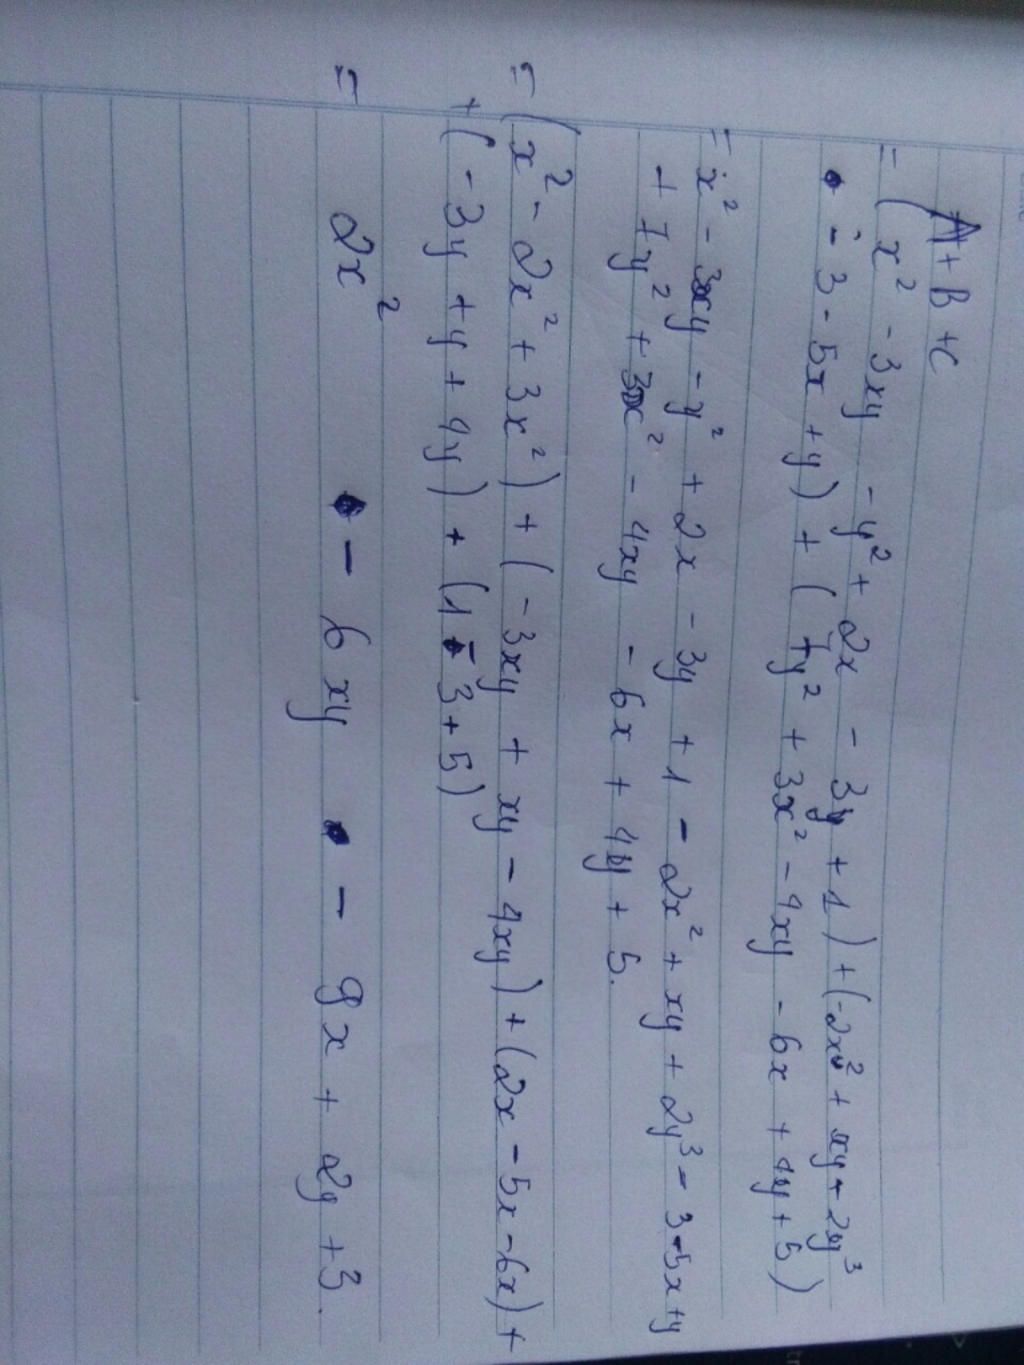 A + B + C
= ( x² - 3xy - y² + 2x - 3y + 1 ) + (-2x² + xy + 2y³
- 3 - 5x + y) + ( 7y² + 3x² - 4xy - 6x + 4y + 5 )
= x² - 3xy - y² + 2x - 3y + 1 - 2x² + xy + 2y³ - 3 - 5x + y
+ 7y² + 3x² - 4xy - 6x + 4y + 5.
= ( x² - 2x² + 3x² ) + ( - 3xy + xy - 4xy ) + (2x - 5x - 6x) +
+ ( - 3y + y + 4y ) + (1 - 3 + 5 )
= 2x² - 6xy - 9x + 2y + 3.